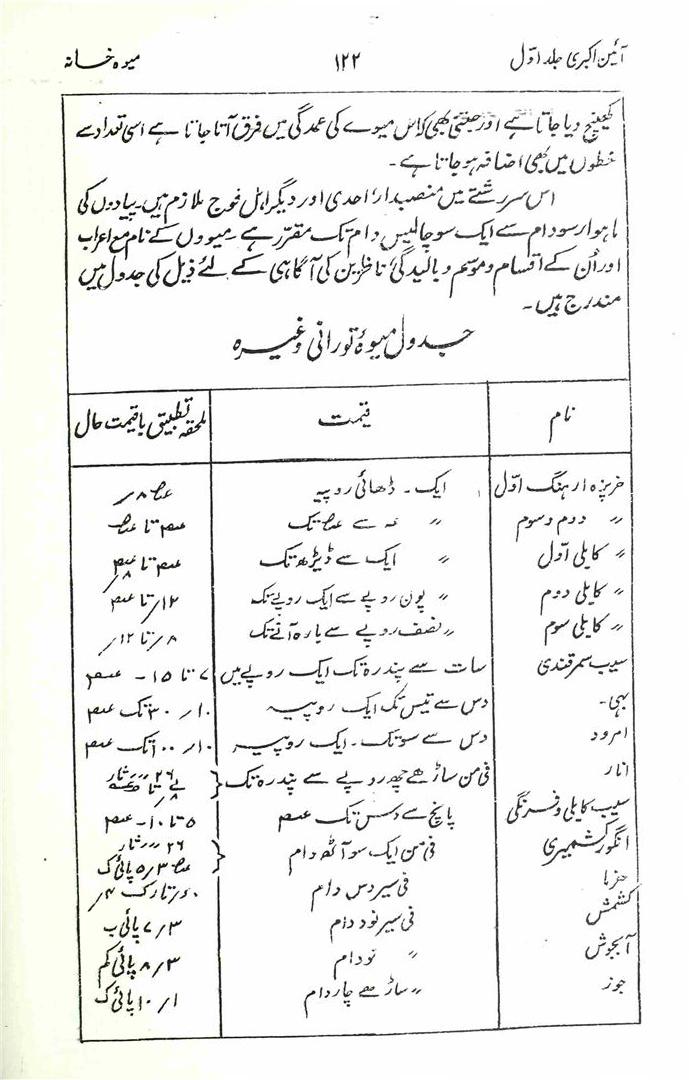 آئین اکبری جلد اوّل ۱۲۲ میوہ خانہ
کھینچ دیا جاتا ہے اور جتنی بھی کہ اس میوے کی عمدگی میں فرق آتا جاتا ہے اسی تعداد سے
خطوں میں بھی اضافہ ہو جاتا ہے۔
اس سررشتے میں منصبدار، احدی اور دیگر اہل فوج ملازم ہیں۔ پیادوں کی
ماہوار سو دام سے ایک سو چالیس دام تک مقرّر ہے۔ میووں کے نام مع اعراب
اور اُن کے اقسام و موسم و بالیدگی ناظرین کی آگاہی کے لئے ذیل کی جدول میں
مندرج ہیں۔
جدول میوۂ تورانی وغیرہ
نام قیمت ملحقہ تطبیق با قیمت حال
خربزہ ارہنگ اوّل ایک۔ ڈھائی روپیہ
〃 دوم و سوم 〃 سے تک
〃 کابلی اوّل 〃 ایک سے ڈیڑھ تک
〃 کابلی دوم 〃 پون روپے سے ایک روپے تک ۱۲/ تا
〃 کابلی سوم 〃 نصف روپے سے بارہ آنے تک ۸/ تا ۱۲/
سیب سمرقندی سات سے پندرہ تک ایک روپے میں ۷ تا ۱۵ -
بہی۔ دس سے تیس تک ایک روپیہ ۱۰/ ۳۰ تک
امرود دس سے سو تک۔ ایک روپیہ ۱۰/ ۱۰۰ تک
انار فی من ساڑھے چھ روپے سے پندرہ تک
سیب کابلی و فرنگی پانچ سے دس تک ۵ تا ۱۰ -
انگور کشمیری فی من ایک سو آٹھ دام ۳/ ۵ پائی ک
خرما فی سیر دس دام
کشمش فی سیر نو دام ۳/ ۷ پائی ب
آبجوش 〃 نو دام ۳/ ۸ پائی کم
جوز 〃 ساڑھے چار دام ۱/ ۱۰ پائی ک